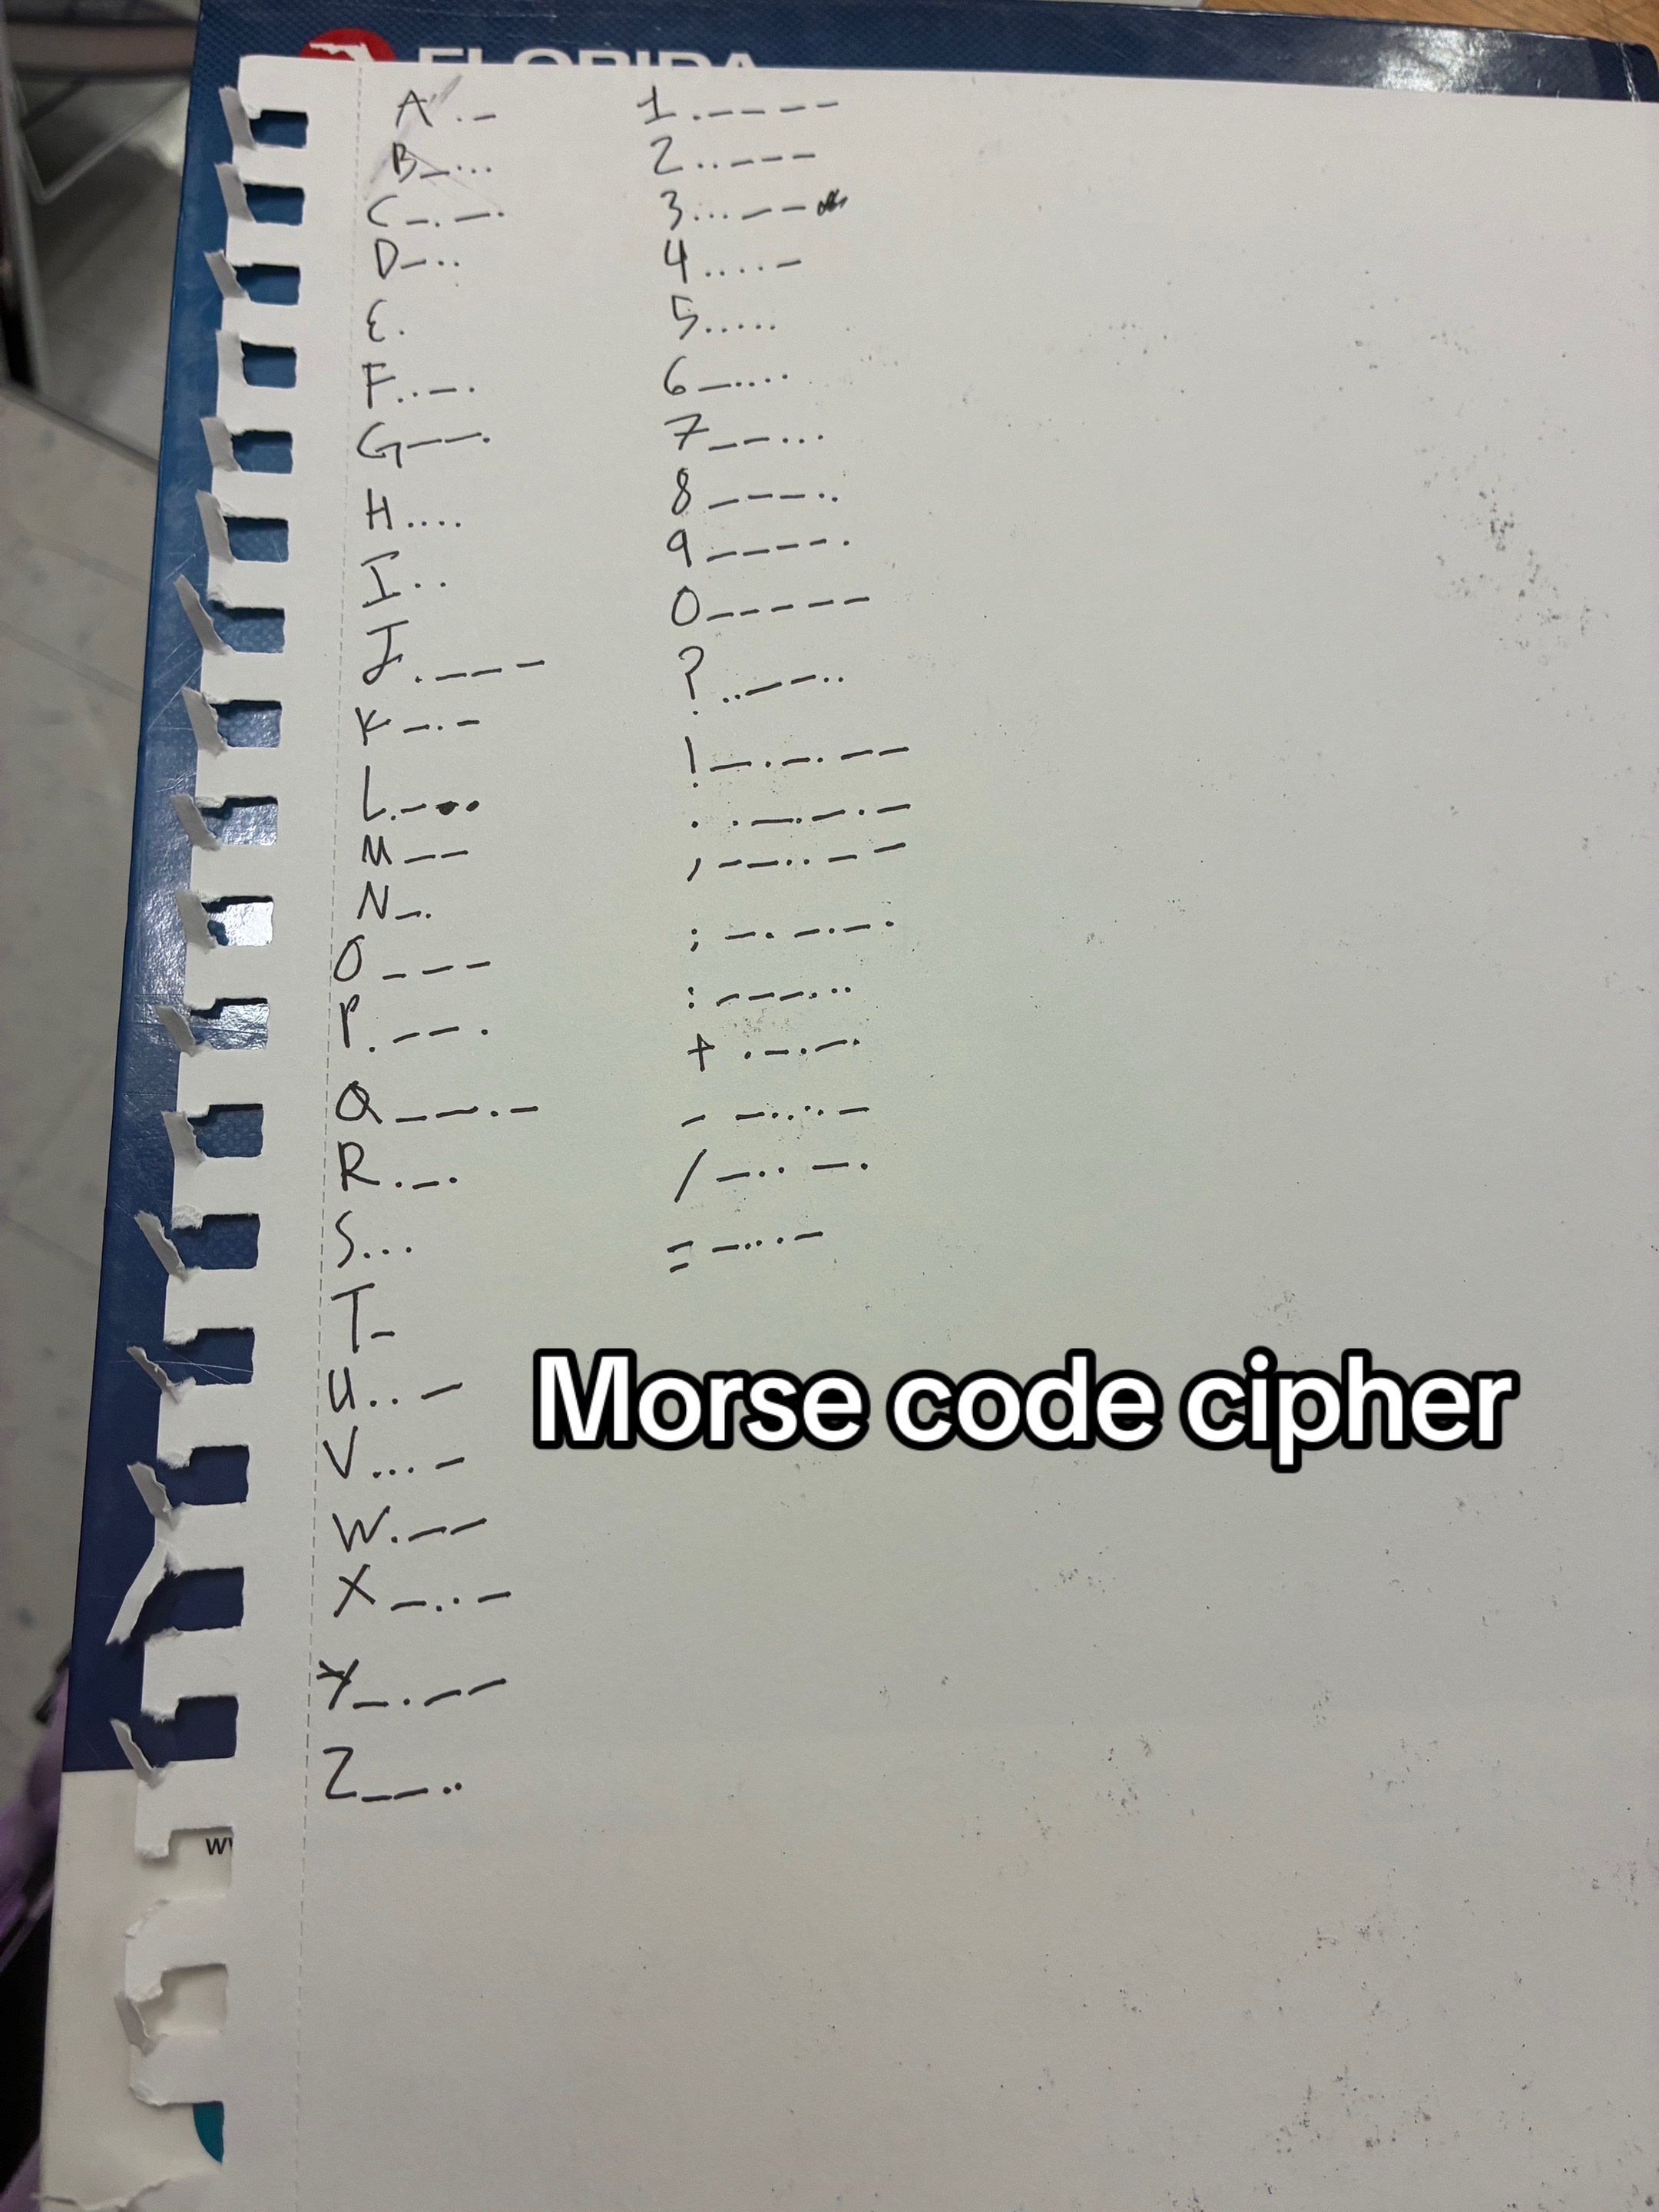 FLORIDA
A .-
B -...
C -.-.
D -..
E .
F ..-.
G --.
H ....
I ..
J .---
K -.-
L .-..
M --
N -.
O ---
P .--.
Q --.-
R .-.
S ...
T -
U ..-
V ...-
W .--
X -..-
Y -.--
Z --..
1 .----
2 ..---
3 ...--
4 ....-
5 .....
6 -....
7 --...
8 ---..
9 ----.
0 -----
? ..--..
! -.-.--
. .-.-.-
, --..--
; -.-.-.
: ---...
+ .-.-.
- -....-
/ -..-.
= -...-
Morse code cipher